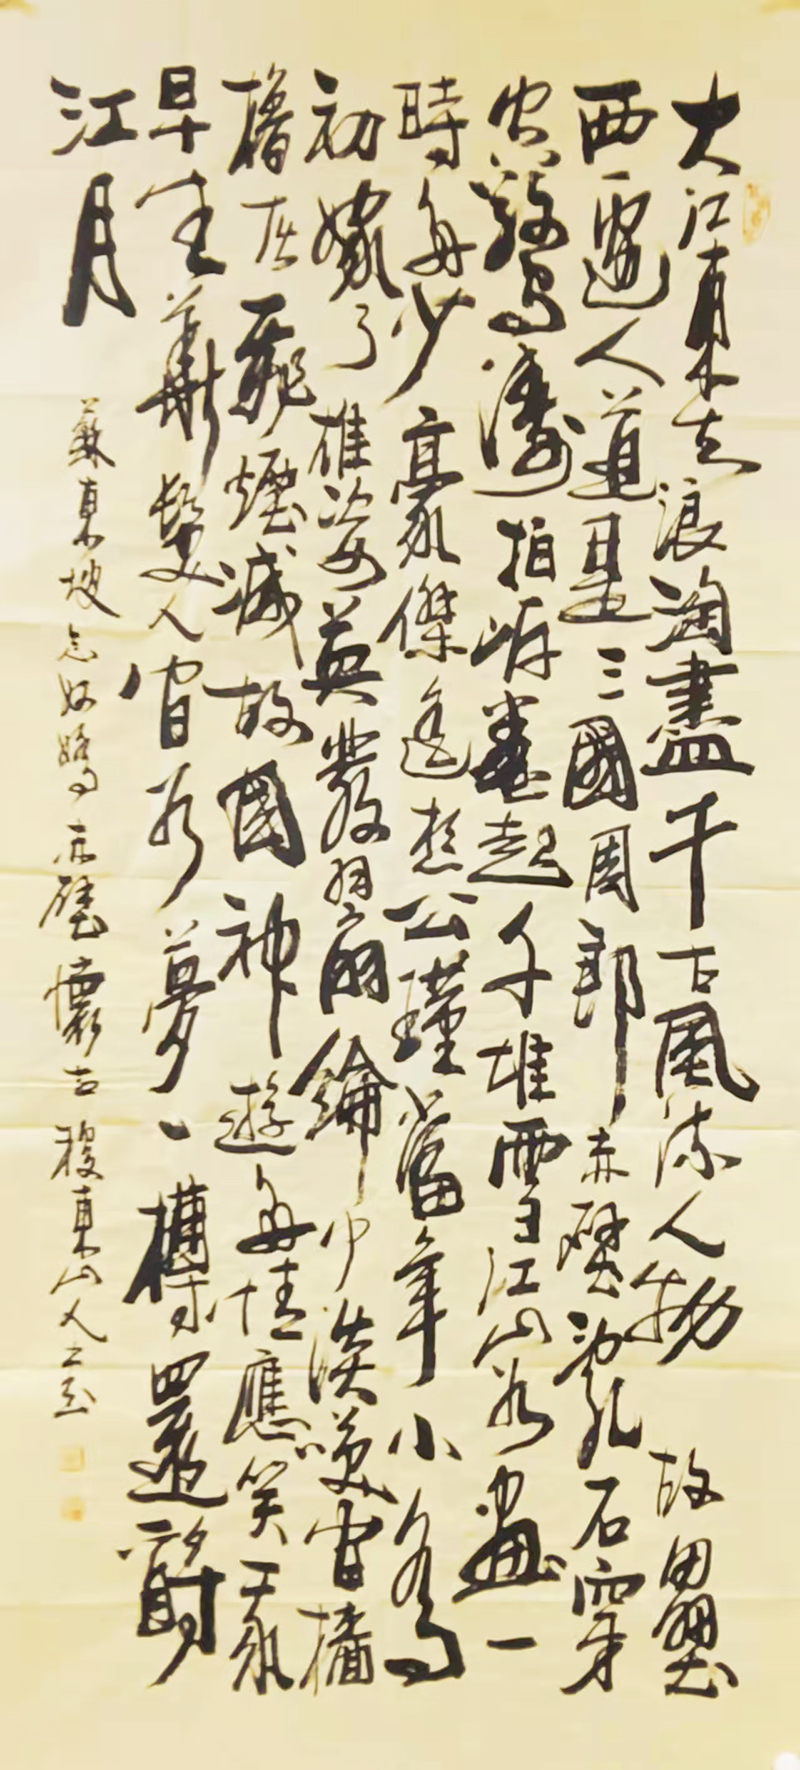 大江東去浪淘盡千古風流人物故壘
西邊人道是三國周郎赤壁亂石穿
空驚濤拍岸卷起千堆雪江山如畫一
時多少豪傑遙想公瑾當年小喬
初嫁了雄姿英發羽扇綸巾談笑間檣
櫓灰飛煙滅故國神遊多情應笑我
早生華髮人間如夢一樽還酹
江月
蘇東坡念奴嬌赤壁懷古東山人